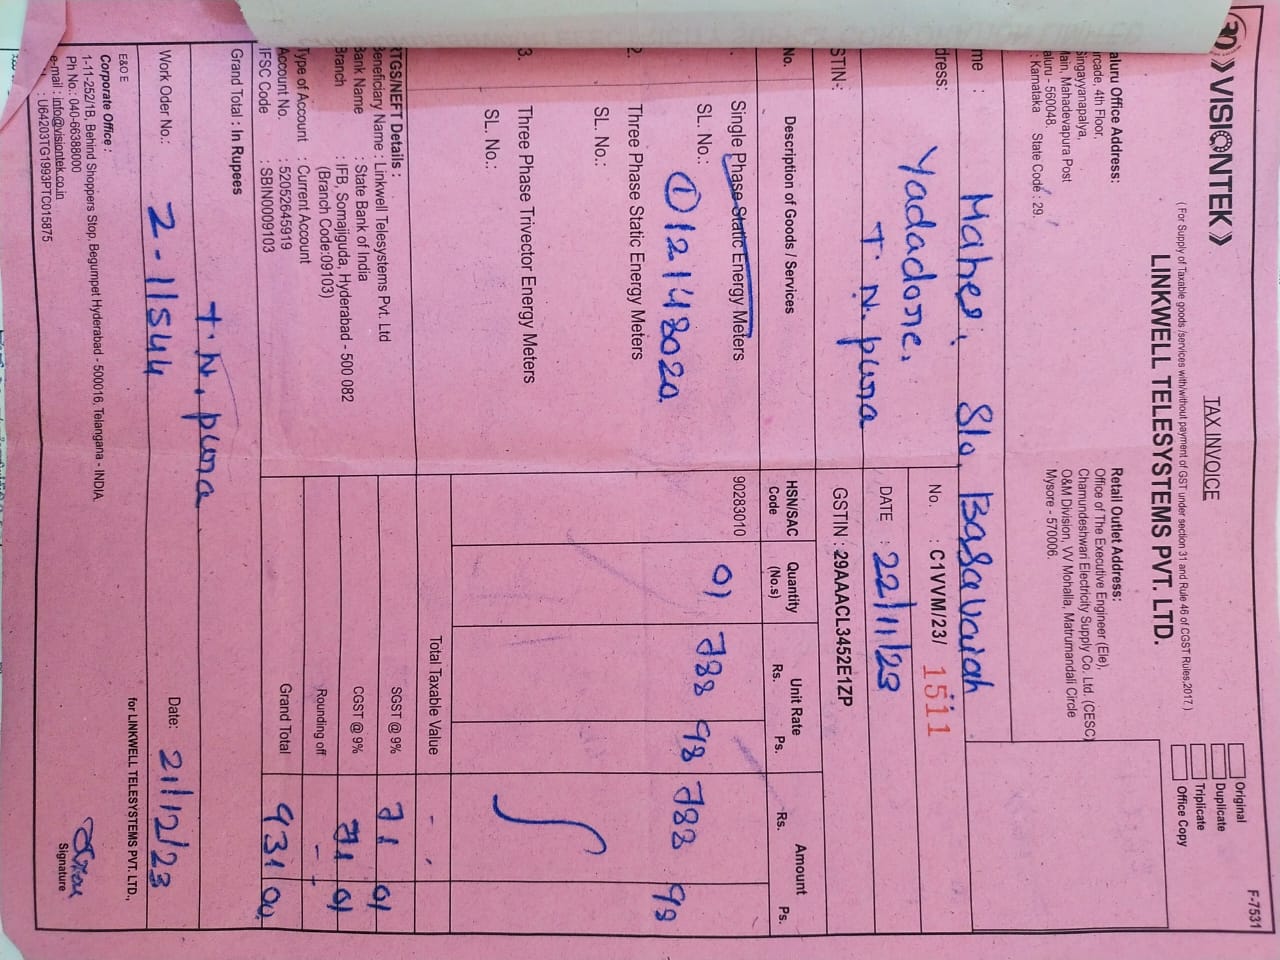 F-7531
VISIONTEK
TAX INVOICE
Original
Duplicate
Triplicate
Office Copy
( For Supply of Taxable goods /services with/without payment of GST under section 31 and Rule 46 of CGST Rules,2017.)
LINKWELL TELESYSTEMS PVT. LTD.
aluru Office Address:
rcade, 4th Floor,
singayyanapalya,
Main, Mahadevapura Post
aluru - 560048.
: Karnataka State Code : 29.
Retail Outlet Address:
Office of The Executive Engineer (Ele),
Chamundeshwari Electricity Supply Co. Ltd. (CESC)
O&M Division, VV Mohalla, Matrumandali Circle
Mysore - 570006.
me : Mahes, S/o, Basavaiah
dress: Yadadore,
T. N. pura
No. : C1VVM/23/ 1511
DATE : 22/11/23
STIN: GSTIN : 29AAACL3452E1ZP
No. Description of Goods / Services HSN/SAC Code Quantity (No.s) Unit Rate Rs. Ps. Amount Rs. Ps.
. Single Phase Static Energy Meters 90283010 01 788 98 788 98
SL. No.: ① 12148020
2. Three Phase Static Energy Meters
SL. No.:
3. Three Phase Trivector Energy Meters
SL. No.:
RTGS/NEFT Details :
Beneficiary Name : Linkwell Telesystems Pvt. Ltd
Bank Name : State Bank of India
Branch : IFB, Somajiguda, Hyderabad - 500 082
(Branch Code:09103)
Type of Account : Current Account
Account No. : 52052645919
IFSC Code : SBIN0009103
Total Taxable Value
SGST @ 9% 71 01
CGST @ 9% 71 01
Rounding off
Grand Total 931 00
Grand Total : In Rupees
T. N. pura
Work Oder No.: 2-11544 Date: 21/12/23
E&O E
Corporate Office :
1-11-252/1B, Behind Shoppers Stop, Begumpet Hyderabad - 500016, Telangana - INDIA
Ph No.: 040-66388000
e-mail : info@visiontek.co.in
: U64203TG1993PTC015875
for LINKWELL TELESYSTEMS PVT. LTD.,
Signature